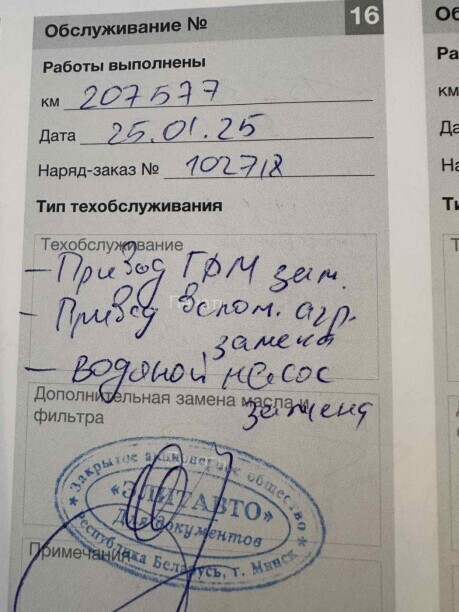 Обслуживание № 16
Об
Работы выполнены
Ра
км 207577
км
Дата 25.01.25
Да
Наряд-заказ № 102718
На
Тип техобслуживания
Ти
Техобслуживание
- Привод ГРМ зам.
- Привод вспом. агр.
замена
- водяной насос
замена
Дополнительная замена масла и
фильтра
Закрытое акционерное общество
«ЭЛИТАВТО»
Для документов
Республика Беларусь, г. Минск
Примечания